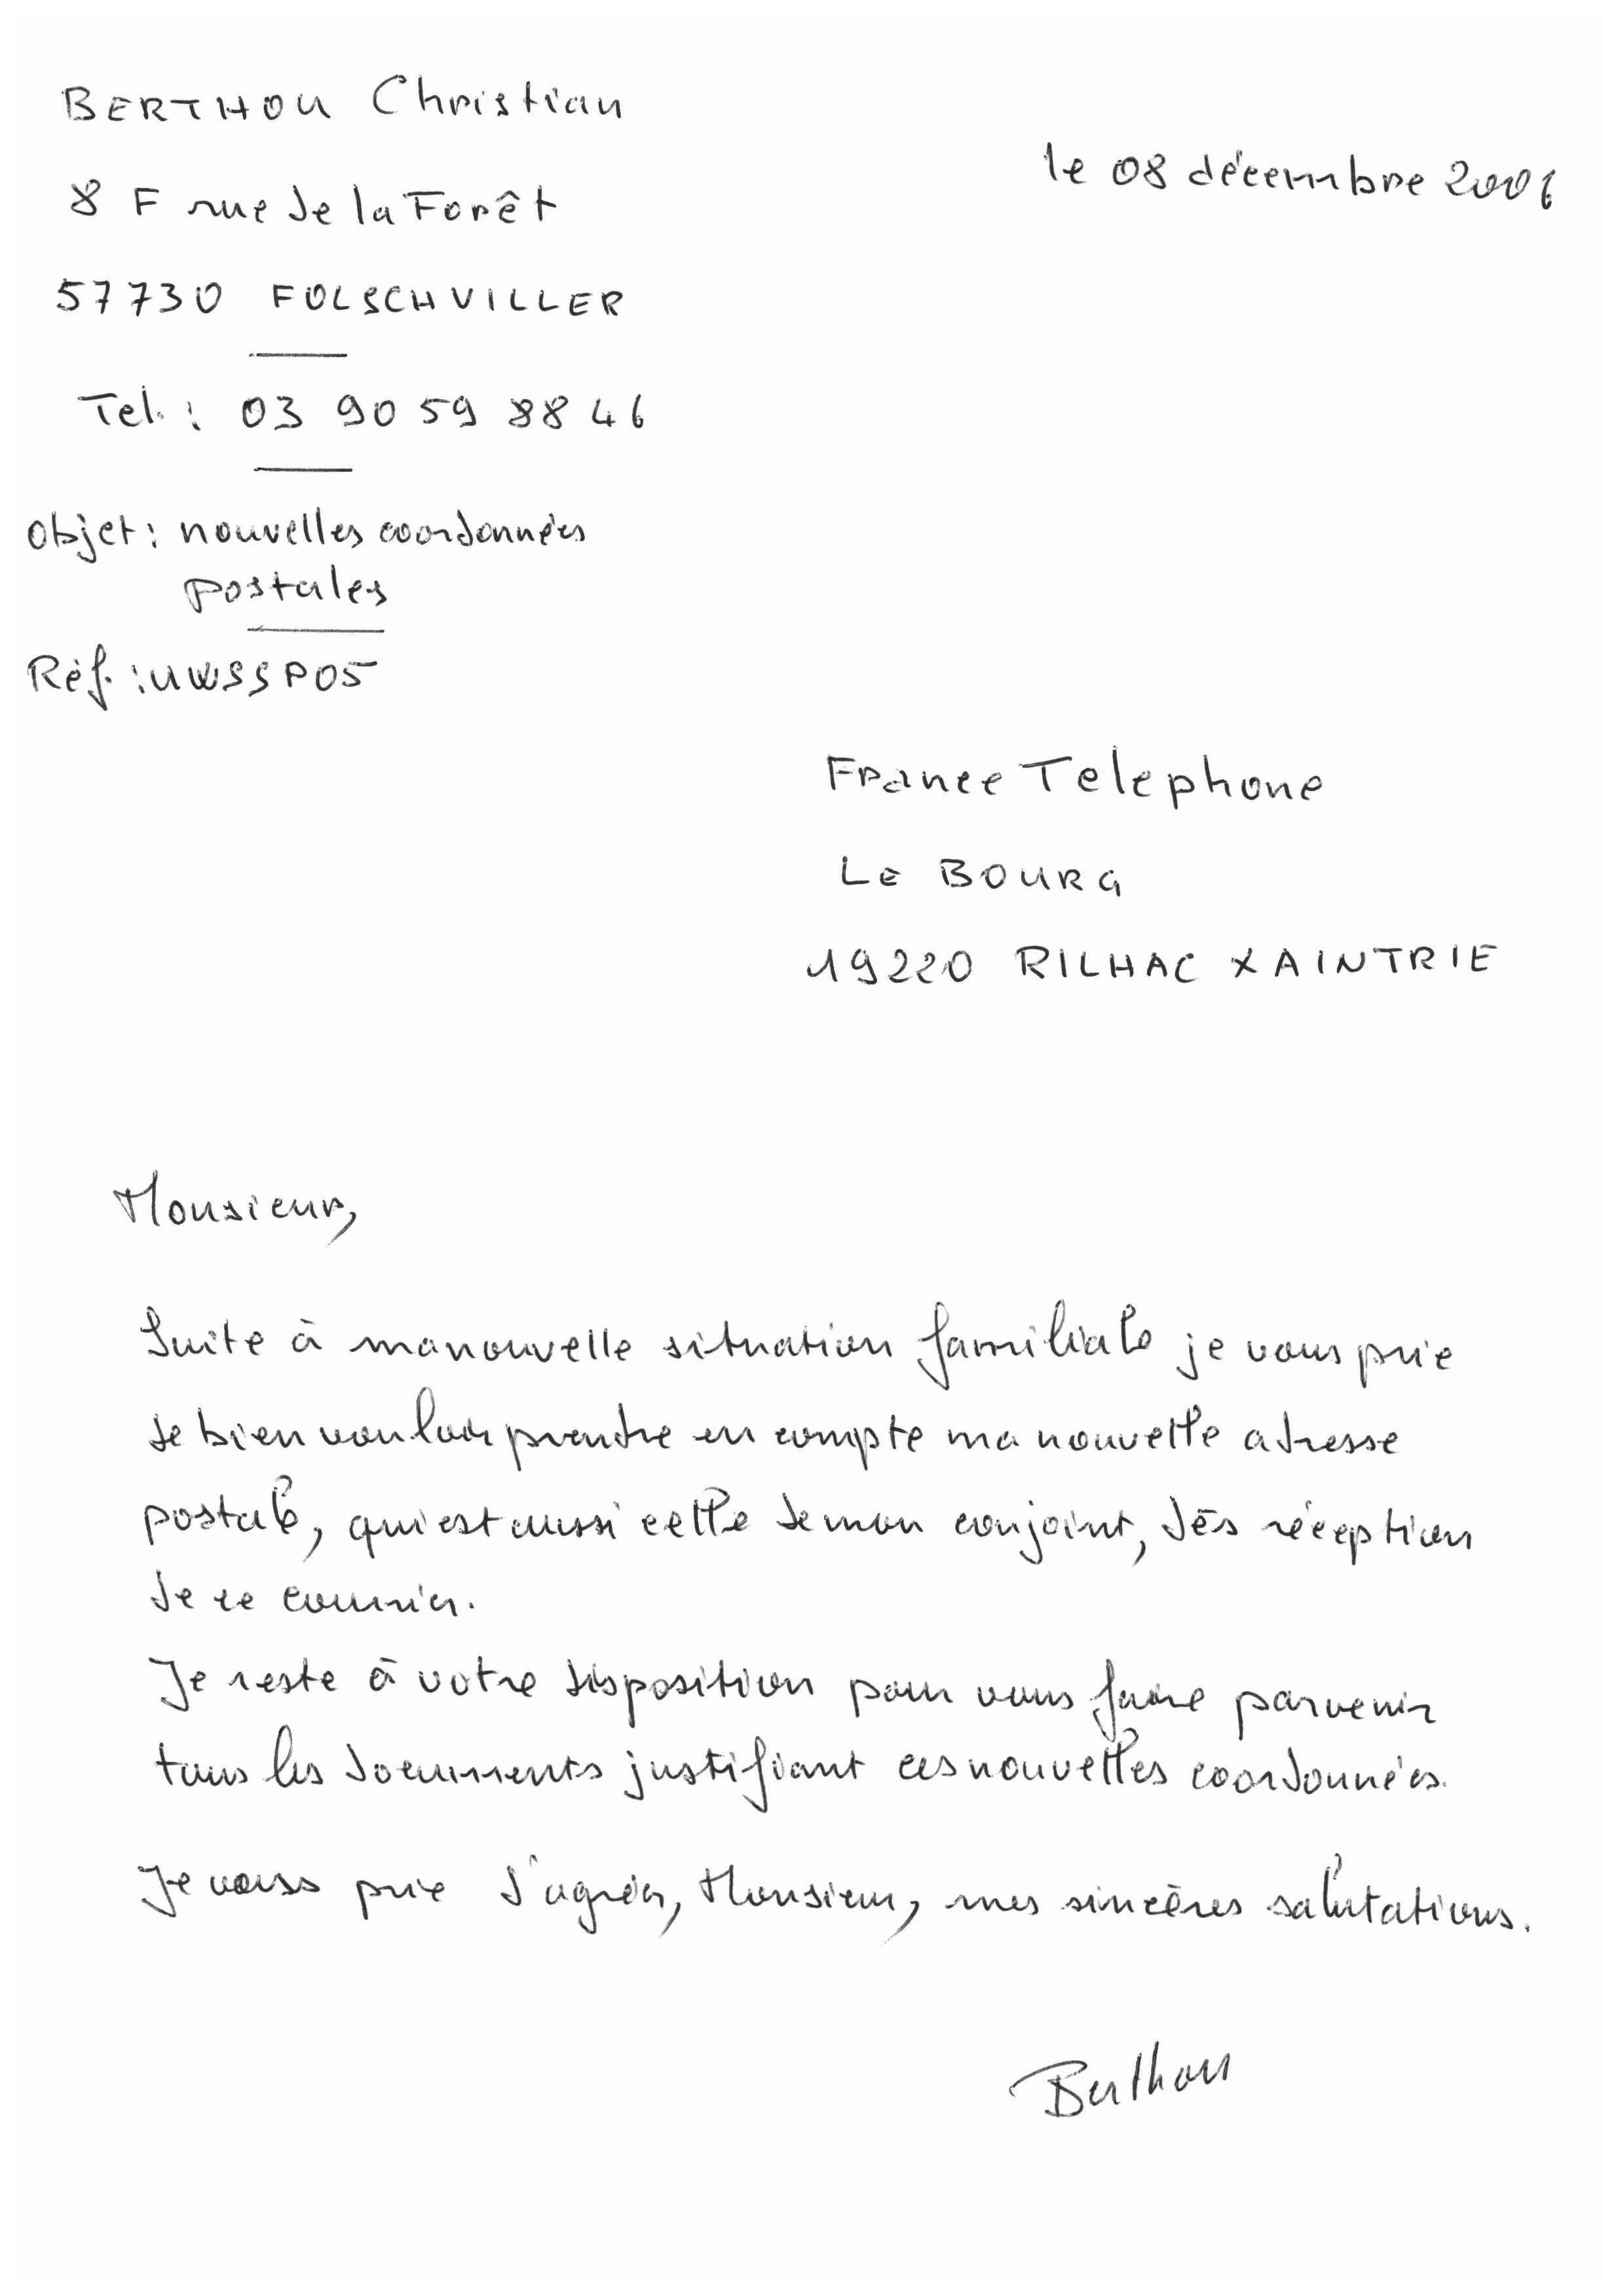 BERTHOU Christian
le 08 décembre 2006
8 F rue de la Forêt
57730 FOLSCHVILLER
Tel. : 03 90 59 88 46
Objet : nouvelles coordonnées
postales
Réf. : UWSSP05
France Telephone
LE BOURG
19220 RILHAC XAINTRIE
Monsieur,
Suite à ma nouvelle situation familiale je vous prie
de bien vouloir prendre en compte ma nouvelle adresse
postale, qui est aussi celle de mon conjoint, dès réception
de ce courrier.
Je reste à votre disposition pour vous faire parvenir
tous les documents justifiant ces nouvelles coordonnées.
Je vous prie d'agréer, Monsieur, mes sincères salutations.
Berthou